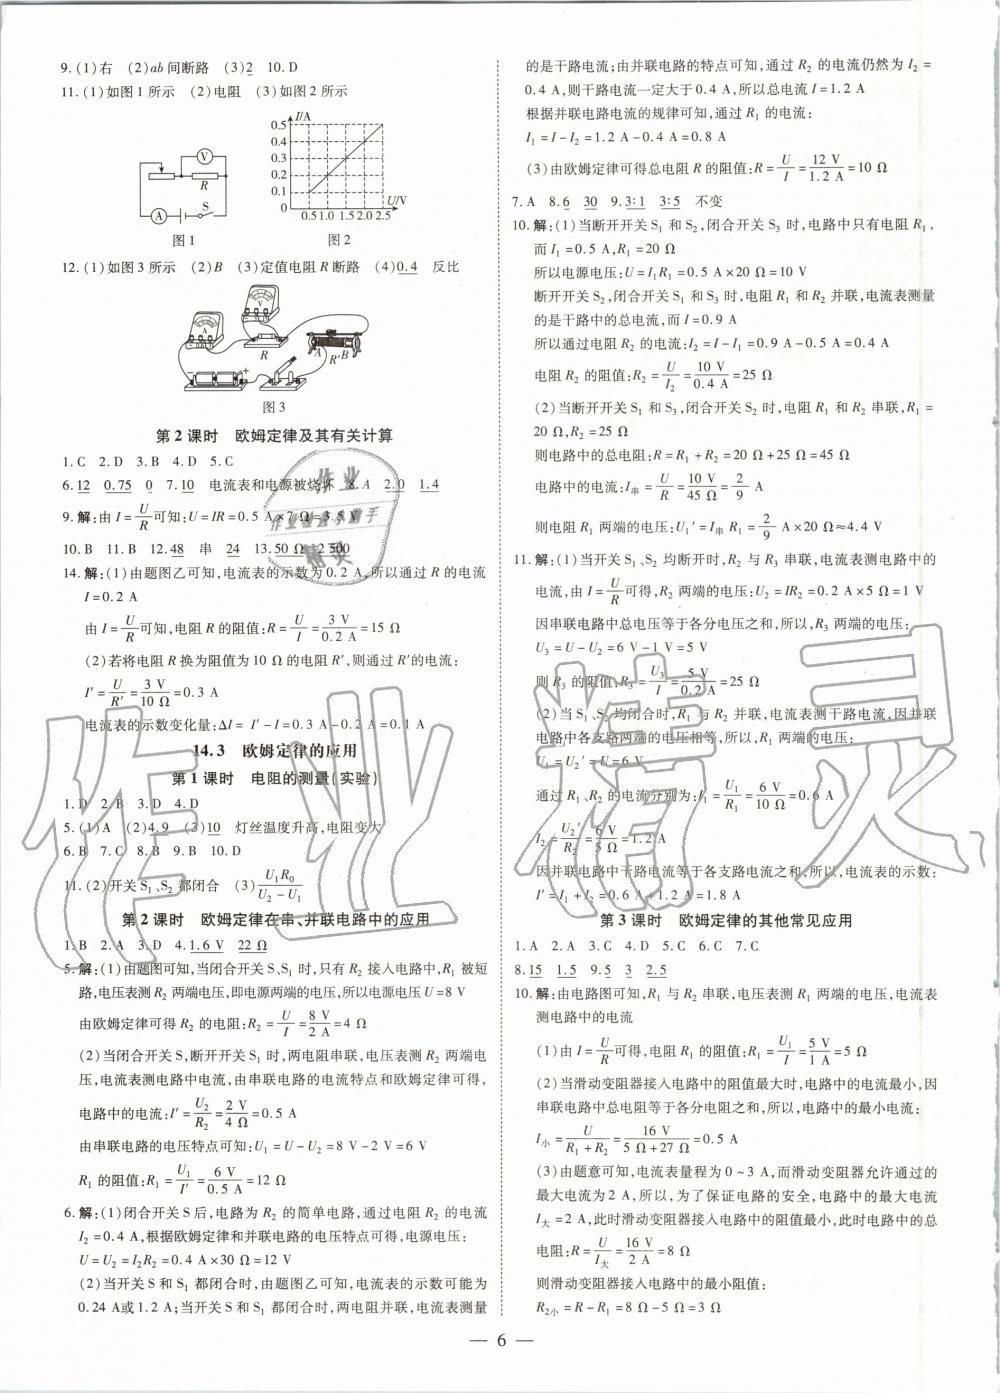 9.(1)右 (2)ab 间断路 (3)2 10.D
11.(1)如图1所示 (2)电阻 (3)如图2所示
V
R
A
S
图1
I/A
0.5
0.4
0.3
0.2
0.1
0
0.5 1.0 1.5 2.0 2.5
U/V
图2
12.(1)如图3所示 (2)B (3)定值电阻R断路 (4)0.4 反比
A
V
R
A
R′
B
− +
图3
第2课时 欧姆定律及其有关计算
1.C 2.D 3.B 4.D 5.C
6.12 0.75 0 7.10 电流表和电源被烧坏 8.A 2.0 1.4
9.解:由I=U/R可知:U=IR=0.5 A×7 Ω=3.5 V
10.B 11.B 12.48 串 24 13.50 Ω~2 500
14.解:(1)由题图乙可知,电流表的示数为0.2 A,所以通过R的电流
I=0.2 A
由I=U/R可知,电阻R的阻值:R=U/I=3 V/0.2 A=15 Ω
(2)若将电阻R换为阻值为10 Ω的电阻R′,则通过R′的电流:
I′=U/R′=3 V/10 Ω=0.3 A
电流表的示数变化量:ΔI= I′−I=0.3 A−0.2 A=0.1 A
14.3 欧姆定律的应用
第1课时 电阻的测量(实验)
1.D 2.B 3.D 4.D
5.(1)A (2)4.9 (3)10 灯丝温度升高,电阻变大
6.B 7.C 8.B 9.B 10.D
11.(2)开关S₁、S₂都闭合 (3)U₁R₀/U₂−U₁
第2课时 欧姆定律在串、并联电路中的应用
1.B 2.A 3.D 4.1.6 V 22 Ω
5.解:(1)由题图可知,当闭合开关S、S₁时,只有R₂接入电路中,R₁被短
路,电压表测R₂两端电压,即电源两端的电压,所以电源电压U=8 V
由欧姆定律可得R₂的电阻:R₂=U/I=8 V/2 A=4 Ω
(2)当闭合开关S,断开开关S₁时,两电阻串联,电压表测R₂两端电
压,电流表测电路中电流,由串联电路的电流特点和欧姆定律可得,
电路中的电流:I′=U₂/R₂=2 V/4 Ω=0.5 A
由串联电路的电压特点可知:U₁=U−U₂=8 V−2 V=6 V
R₁的阻值:R₁=U₁/I′=6 V/0.5 A=12 Ω
6.解:(1)闭合开关S后,电路为R₂的简单电路,通过电阻R₂的电流
I₂=0.4 A,根据欧姆定律和并联电路的电压特点可得,电源电压:
U=U₂=I₂R₂=0.4 A×30 Ω=12 V
(2)当开关S和S₁都闭合时,由题图乙可知,电流表的示数可能为
0.24 A或1.2 A;当开关S和S₁都闭合时,两电阻并联,电流表测量
的是干路电流;由并联电路的特点可知,通过R₂的电流仍然为I₂=
0.4 A,则干路电流一定大于0.4 A,所以总电流I=1.2 A
根据并联电路电流的规律可知,通过R₁的电流:
I₁=I−I₂=1.2 A−0.4 A=0.8 A
(3)由欧姆定律可得总电阻R的阻值:R=U/I=12 V/1.2 A=10 Ω
7.A 8.6 30 9.3∶1 3∶5 不变
10.解:(1)当断开开关S₁和S₂,闭合开关S₃时,电路中只有电阻R₁,
而I₁=0.5 A,R₁=20 Ω
所以电源电压:U=I₁R₁=0.5 A×20 Ω=10 V
断开开关S₂,闭合开关S₁和S₃时,电阻R₁和R₂并联,电流表测量
的是干路中的总电流,而I=0.9 A
所以通过电阻R₂的电流:I₂=I−I₁=0.9 A−0.5 A=0.4 A
电阻R₂的阻值:R₂=U/I₂=10 V/0.4 A=25 Ω
(2)当断开开关S₁和S₃,闭合开关S₂时,电阻R₁和R₂串联,R₁=
20 Ω,R₂=25 Ω
则电路中的总电阻:R=R₁+R₂=20 Ω+25 Ω=45 Ω
电路中的电流:I串=U/R=10 V/45 Ω=2/9 A
则电阻R₁两端的电压:U₁′=I串R₁=2/9 A×20 Ω≈4.4 V
11.解:(1)当开关S₁、S₂均断开时,R₂与R₃串联,电流表测电路中的
电流,由I=U/R可得,R₂两端的电压:U₂=IR₂=0.2 A×5 Ω=1 V
因串联电路中总电压等于各分电压之和,所以,R₃两端的电压:
U₃=U−U₂=6 V−1 V=5 V
则R₃的阻值:R₃=U₃/I=5 V/0.2 A=25 Ω
(2)当S₁、S₂均闭合时,R₁与R₂并联,电流表测干路电流,因并联
电路中各支路两端的电压相等,所以,R₂两端的电压:
U₂′=U=6 V
通过R₁、R₂的电流分别为:I₁=U₁/R₁=6 V/10 Ω=0.6 A
I₂=U₂′/R₂=6 V/5 Ω=1.2 A
因并联电路中干路电流等于各支路电流之和,所以,电流表的示数:
I′=I₁+I₂=0.6 A+1.2 A=1.8 A
第3课时 欧姆定律的其他常见应用
1.A 2.A 3.C 4.D 5.C 6.C 7.C
8.15 1.5 9.5 3 2.5
10.解:由电路图可知,R₁与R₂串联,电压表测R₁两端的电压,电流表
测电路中的电流
(1)由I=U/R可得,电阻R₁=U₁/I=5 V/1 A=5 Ω
(2)当滑动变阻器接入电路中的阻值最大时,电路中的电流最小,因
串联电路中总电阻等于各分电阻之和,所以,电路中的最小电流:
I小=U/R₁+R₂=16 V/5 Ω+27 Ω=0.5 A
(3)由题意可知,电流表量程为0~3 A,而滑动变阻器允许通过的
最大电流为2 A,所以,为了保证电路的安全,电路中的最大电流
I大=2 A,此时滑动变阻器接入电路中的阻值最小,此时电路中的总
电阻:R=U/I大=16 V/2 A=8 Ω
则滑动变阻器接入电路中的最小阻值:
R₂小=R−R₁=8 Ω−5 Ω=3 Ω
— 6 —
作业精灵